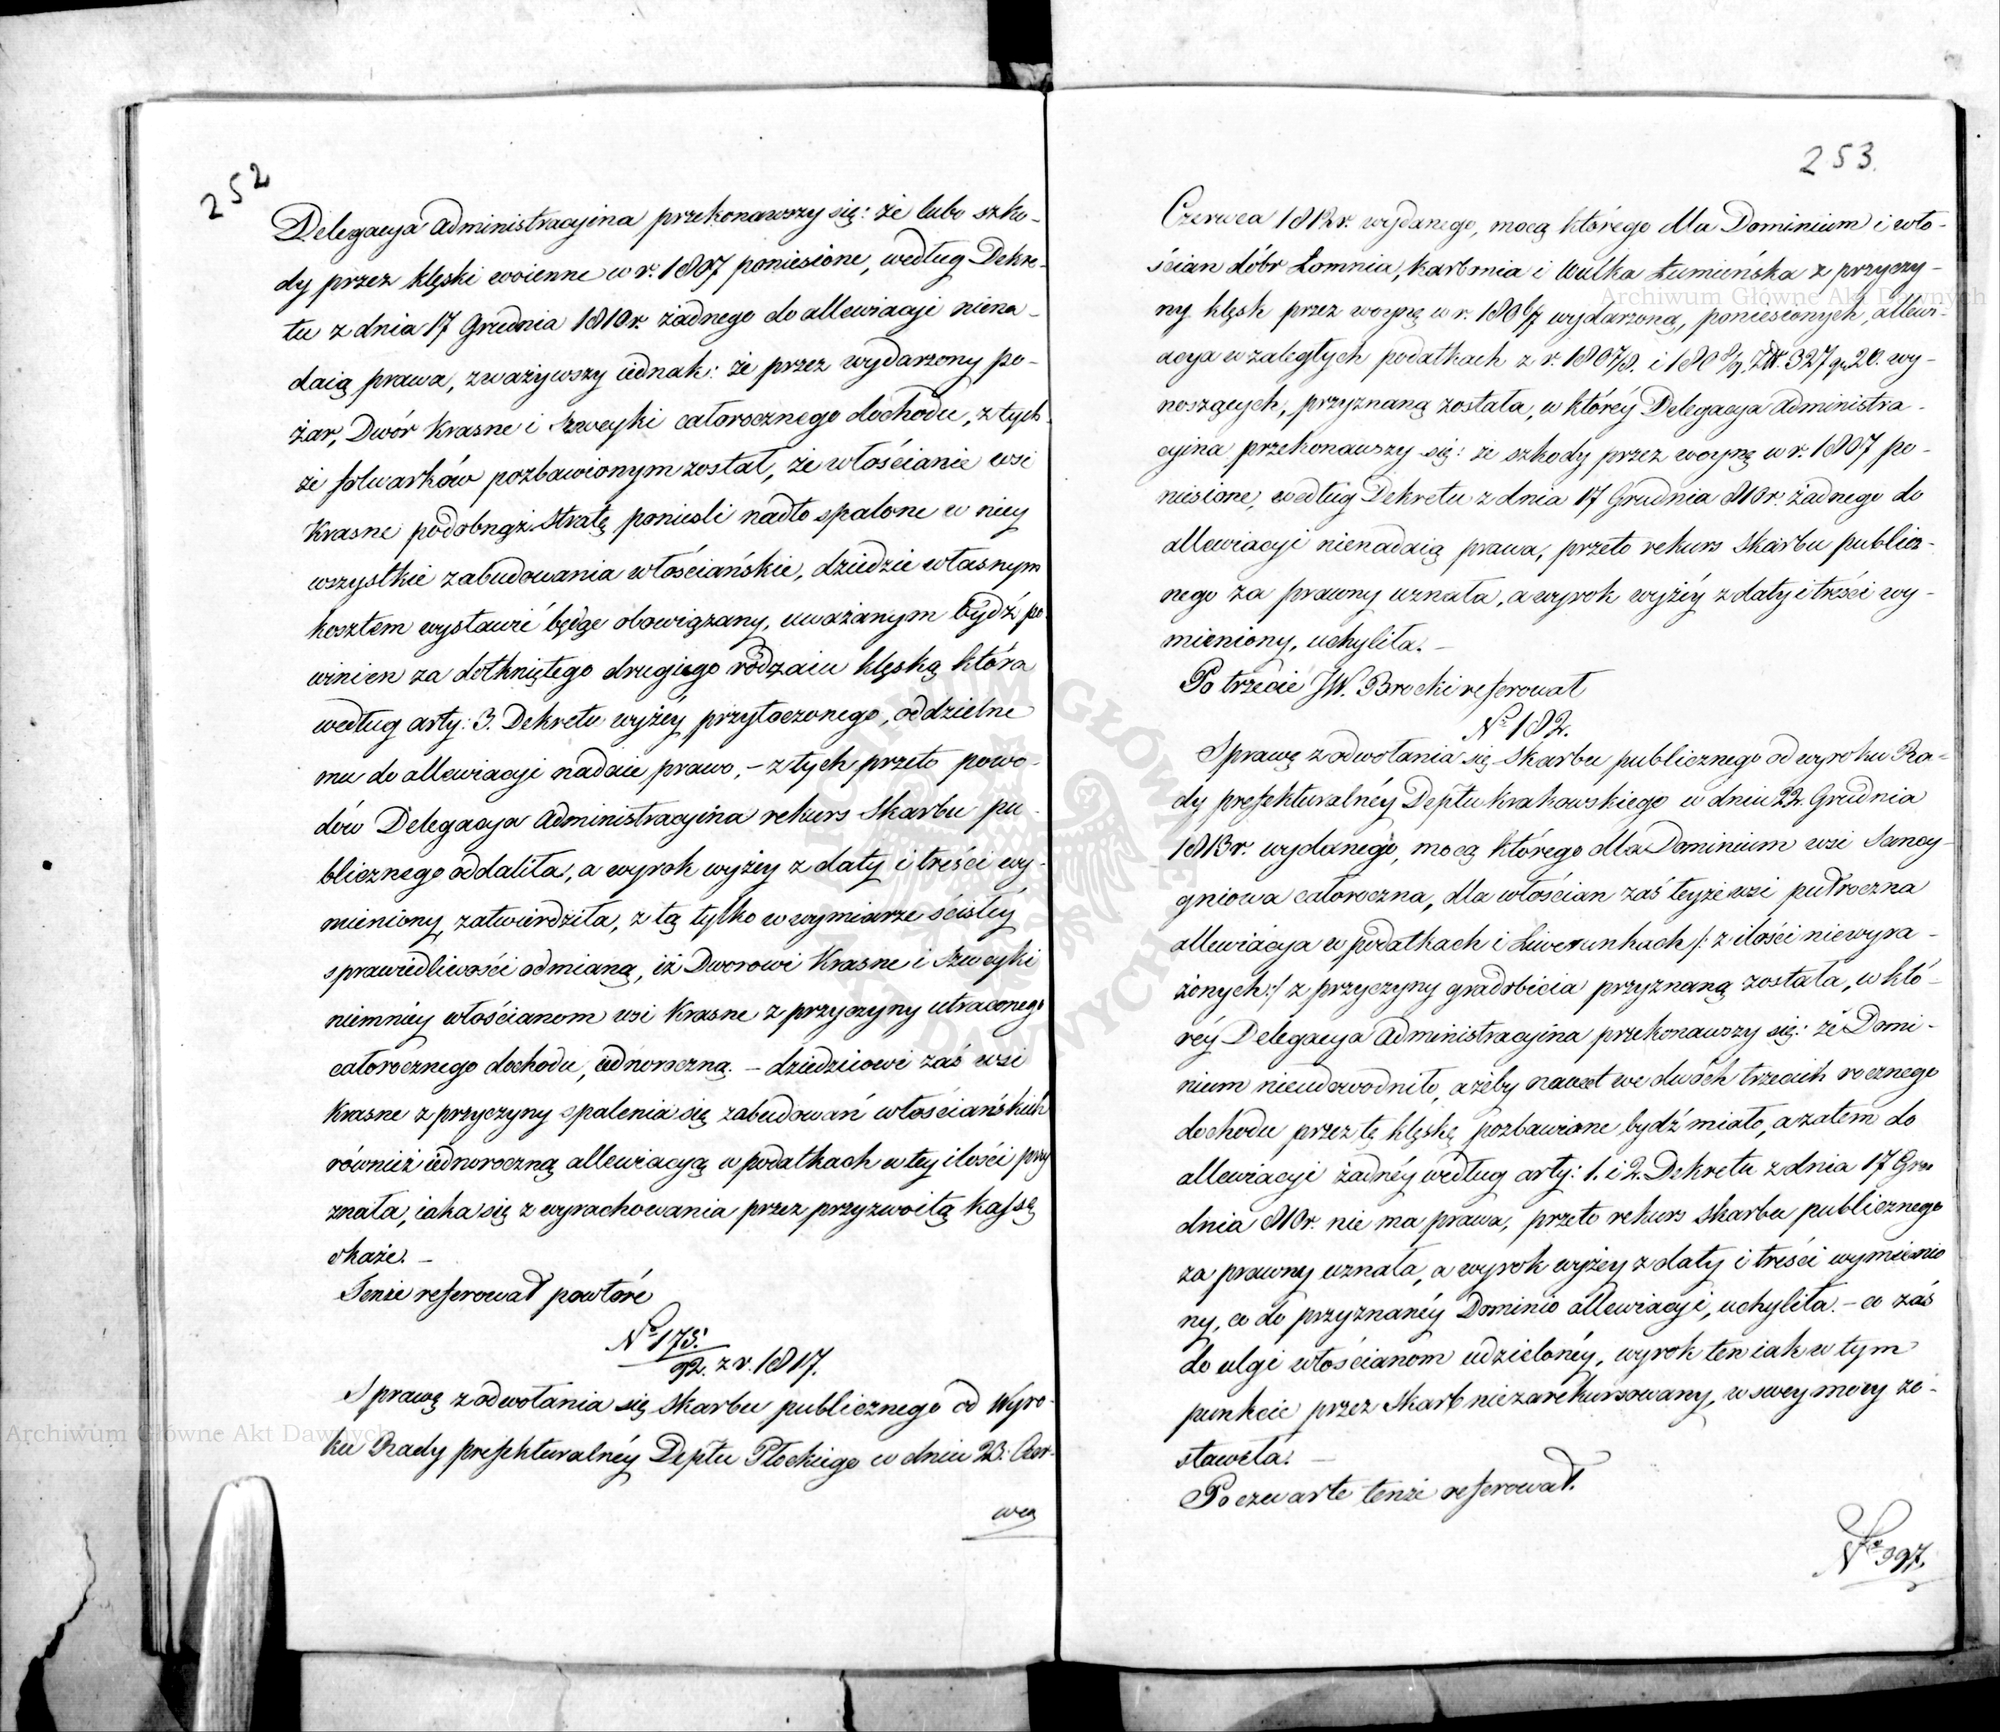 252
Delegacya Administracyina przekonawszy się: że lubo szko-
dy przez klęski woienne w r. 1807 poniesione, według Dekre-
tu z dnia 17 Grudnia 1810 r. żadnego do allewiacyi niena-
daią prawa, zważywszy iednak: że przez wydarzony po-
żar, Dwór Krasne i Szweyki całorocznego dochodu, z tych
że folwarków pozbawionym został, że włościanie wsi
Krasne podobnąż stratę ponieśli nadto spalone w niey
wszystkie zabudowania włościańskie, dziedzic własnym
kosztem wystawić będąc obowiązany, uważanym bydź po-
winien za dotkniętego drugiego rodzaiu klęską która
według arty: 3. Dekretu wyżéy przytoczonego, oddzielne
mu do allewiacyi nadaie prawo, – z tych przeto powo-
dów Delegacya Administracyina rekurs Skarbu pu-
blicznego oddaliła, a wyrok wyżey z daty i treści wy-
mieniony, zatwierdziła, z tą tylko w wymiarze ścisłéy
sprawiedliwości odmianą, iż Dworowi Krasne i Szweyki
niemniéy włościanom wsi Krasne z przyczyny utraconego
całorocznego dochodu, iednoroczną. – dziedzicowi zaś wsi
Krasne z przyczyny spalenia się zabudowań włościańskich
również iednoroczną allewiacyą w podatkach w tey ilości przy
znała, iaka się z wyrachowania przez przyzwoitą Kassę
okaże. –
Tenże referował powtóre
No 175.
92. z r. 1817.
Sprawę z odwołania się Skarbu publicznego od Wyro-
ku Rady prefekturalnéy Deptu Płockiego w dniu 23. Czer-
wca
253.
Czerwca 1812 r. wydanego, mocą którego dla Dominium i wło-
ścian dóbr Łomnia, Karbnia i Wulka Łumieńska z przyczy-
ny klęsk przez woynę w r. 1806/7 wydarzoną, poniesionych, allewi-
acya w zaległych podatkach z r. 1807/8. i 1808/9. Zł. 327 gr 20. wy-
noszących, przyznaną została, w któréy Delegacya Administra-
cyina przekonawszy się: że szkody przez woynę w r. 1807 po-
niesione, według Dekretu z dnia 17 Grudnia 810 r. żadnego do
allewiacyi nienadaią prawa, przeto rekurs Skarbu publicz-
nego za prawny uznała, a wyrok wyżéy z daty i treści wy-
mieniony, uchyliła. –
Po trzecie JW. Brocki referował
No 182.
Sprawę z odwołania się Skarbu publicznego od wyroku Ra-
dy prefekturalnéy Deptu Krakowskiego w dniu 22. Grudnia
1813 r. wydanego, mocą którego dla Dominium wsi Sancy-
gniowa całoroczna, dla włościan zaś teyże wsi pułroczna
allewiacya w podatkach i Liwerunkach /: z ilości niewyra-
żonych :/ z przyczyny gradobicia przyznaną została, w któ-
réy Delegacya Administracyina przekonawszy się: że Domi-
nium nieudowodniło, ażeby nawet we dwóch trzecich rocznego
dochodu przez tę klęskę pozbawione bydź miało, a zatem do
allewiacyi żadnéy według arty: 1. i 2. Dekretu z dnia 17 Gru
dnia 810 r. nie ma prawa, przeto rekurs Skarbu publicznego
za prawny uznała, a wyrok wyżey z daty i treści wymienio
ny, co do przyznanéy Dominio allewiacyi, uchyliła. – co zaś
do ulgi włościanom udzielonéy, wyrok ten iak w tym
punkcie przez Skarb niezarekursowany, w swey mocy zo-
stawiła. –
Po czwarte tenże referował.
No 397.
Archiwum Główne Akt Dawnych
Archiwum Główne Akt Dawnych